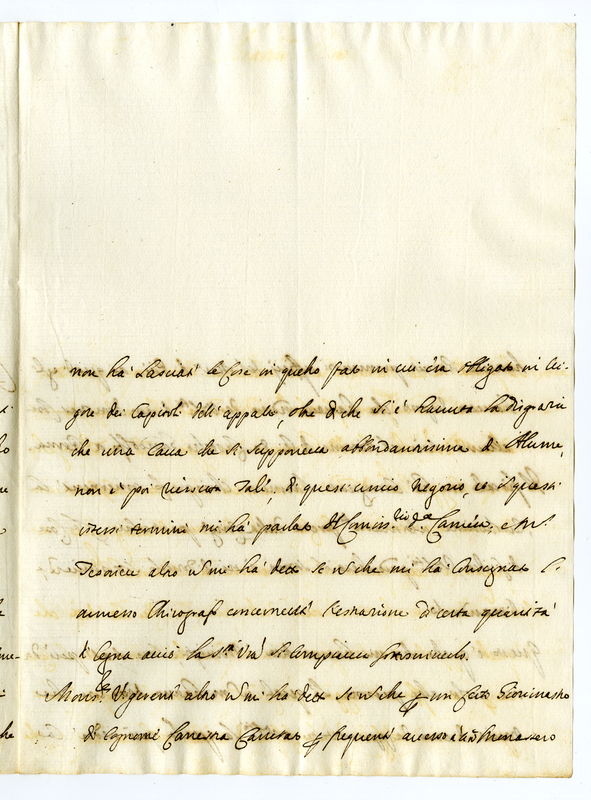 non hà Lasciat' le Cose in quello stato in cui era Obligato in vi-
gore dei Capitoli dell'appalto, oltre di che si è havuta la disgrazia
che una Cava che si supponeva abbondantissima di Alume,
non è poi riescita tale, di quest'unico negozio, et in questi
istessi termini mi hà parlato il Comiss.rio d.a Camera, e M.r
Tesoriere altro non mi hà detto se non che mi hà Consegnato l'
annesso Chirografo concernente l'estrazione di certa quantità
di legna acciò la S.tà V.ra si compiaccia sottoscriverlo.
Mons.re Vigerente altro non mi hà detto se non che per un certo
di Cognome Canestra Carcerato per frequenti accessi a un Monastero